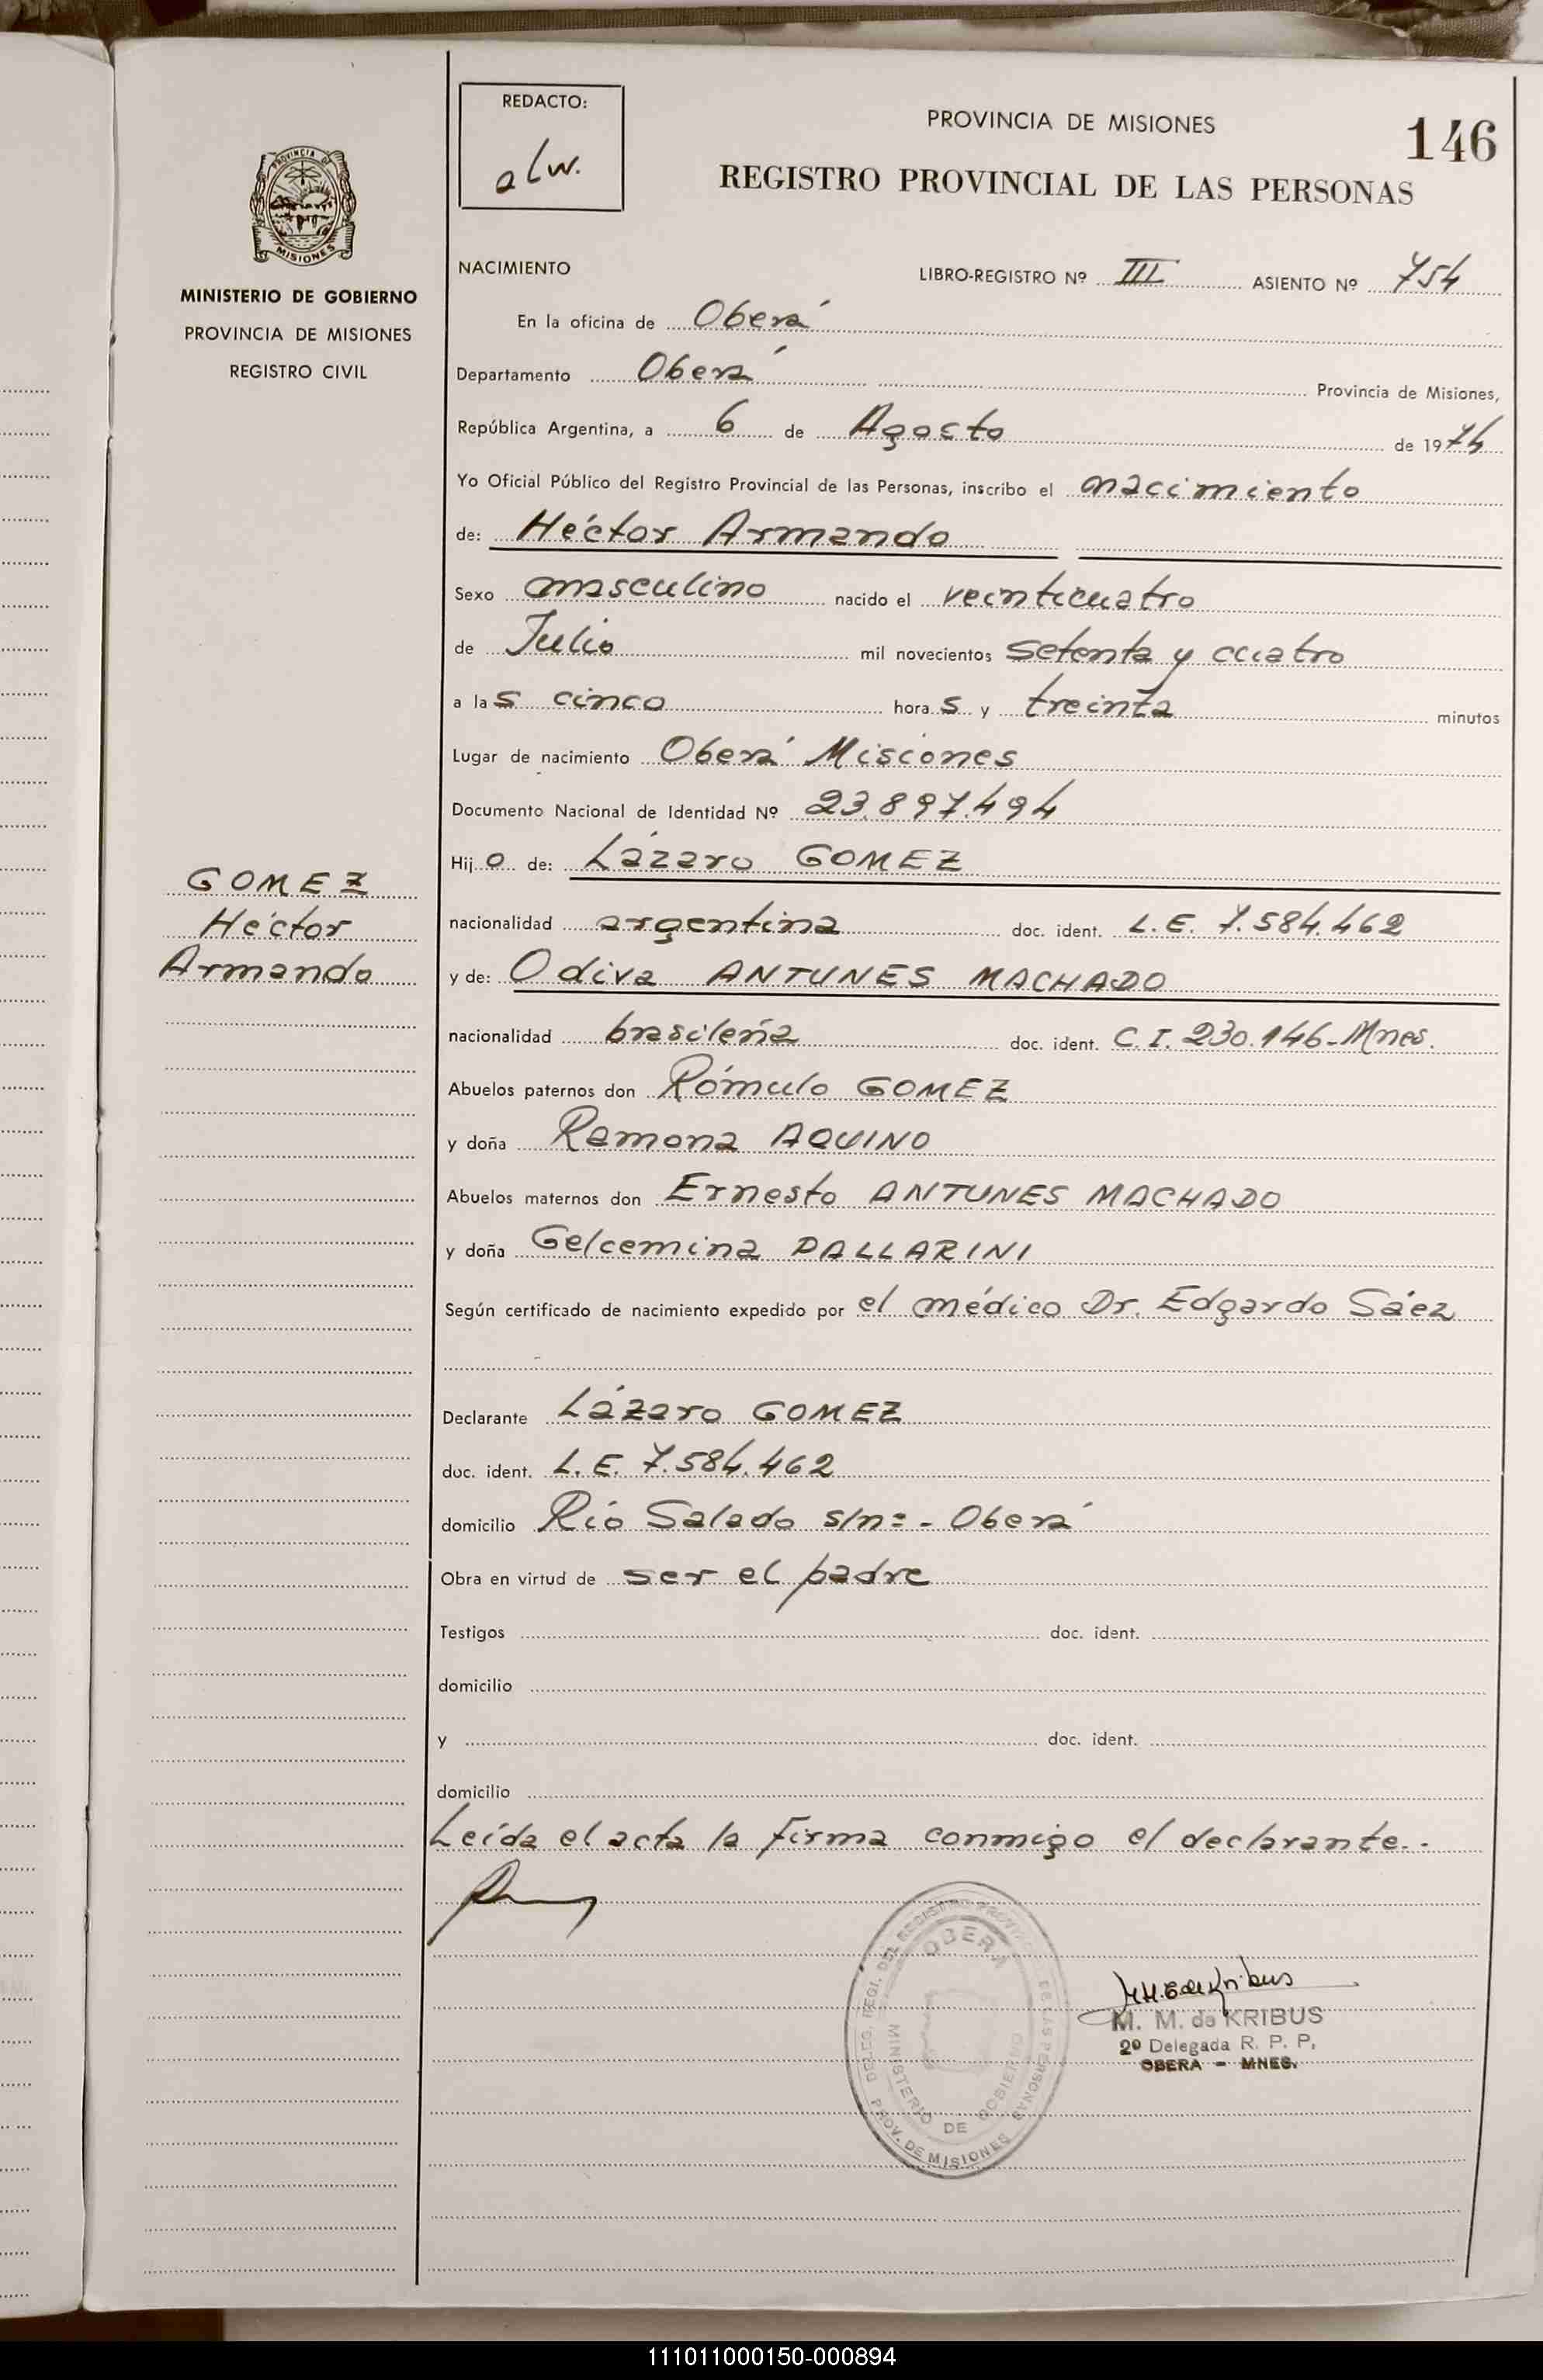 REDACTO:
alw.
PROVINCIA DE MISIONES
146
REGISTRO PROVINCIAL DE LAS PERSONAS
PROVINCIA DE
MISIONES
MINISTERIO DE GOBIERNO
PROVINCIA DE MISIONES
REGISTRO CIVIL
NACIMIENTO LIBRO-REGISTRO Nº III ASIENTO Nº 754
En la oficina de Oberá
Departamento Oberá Provincia de Misiones,
República Argentina, a 6 de Agosto de 1974
Yo Oficial Público del Registro Provincial de las Personas, inscribo el nacimiento
de: Héctor Armando
Sexo masculino nacido el veinticuatro
de Julio mil novecientos setenta y cuatro
a las cinco horas y treinta minutos
Lugar de nacimiento Oberá Misiones
Documento Nacional de Identidad Nº 23.897.494
Hijo de: Lázaro GOMEZ
GOMEZ
Héctor
Armando
nacionalidad argentina doc. ident. L.E. 7.584.462
y de: Odiva ANTUNES MACHADO
nacionalidad brasileña doc. ident. C.I. 230.146-Mnes.
Abuelos paternos don Rómulo GOMEZ
y doña Ramona AQUINO
Abuelos maternos don Ernesto ANTUNES MACHADO
y doña Gelcemina DALLARINI
Según certificado de nacimiento expedido por el médico Dr. Edgardo Sáez
Declarante Lázaro GOMEZ
doc. ident. L.E. 7.584.462
domicilio Río Salado s/nº - Oberá
Obra en virtud de ser el padre
Testigos doc. ident.
domicilio
y doc. ident.
domicilio
Leída el acta la firma conmigo el declarante.-
DELEG. REGI. DEL REGISTRO PROVINCIAL DE LAS PERSONAS
OBERA
MINISTERIO DE GOBIERNO
PROV. DE MISIONES
M. M. de Kribus
M. M. de KRIBUS
2º Delegada R. P. P.
OBERA - MNES.
111011000150-000894